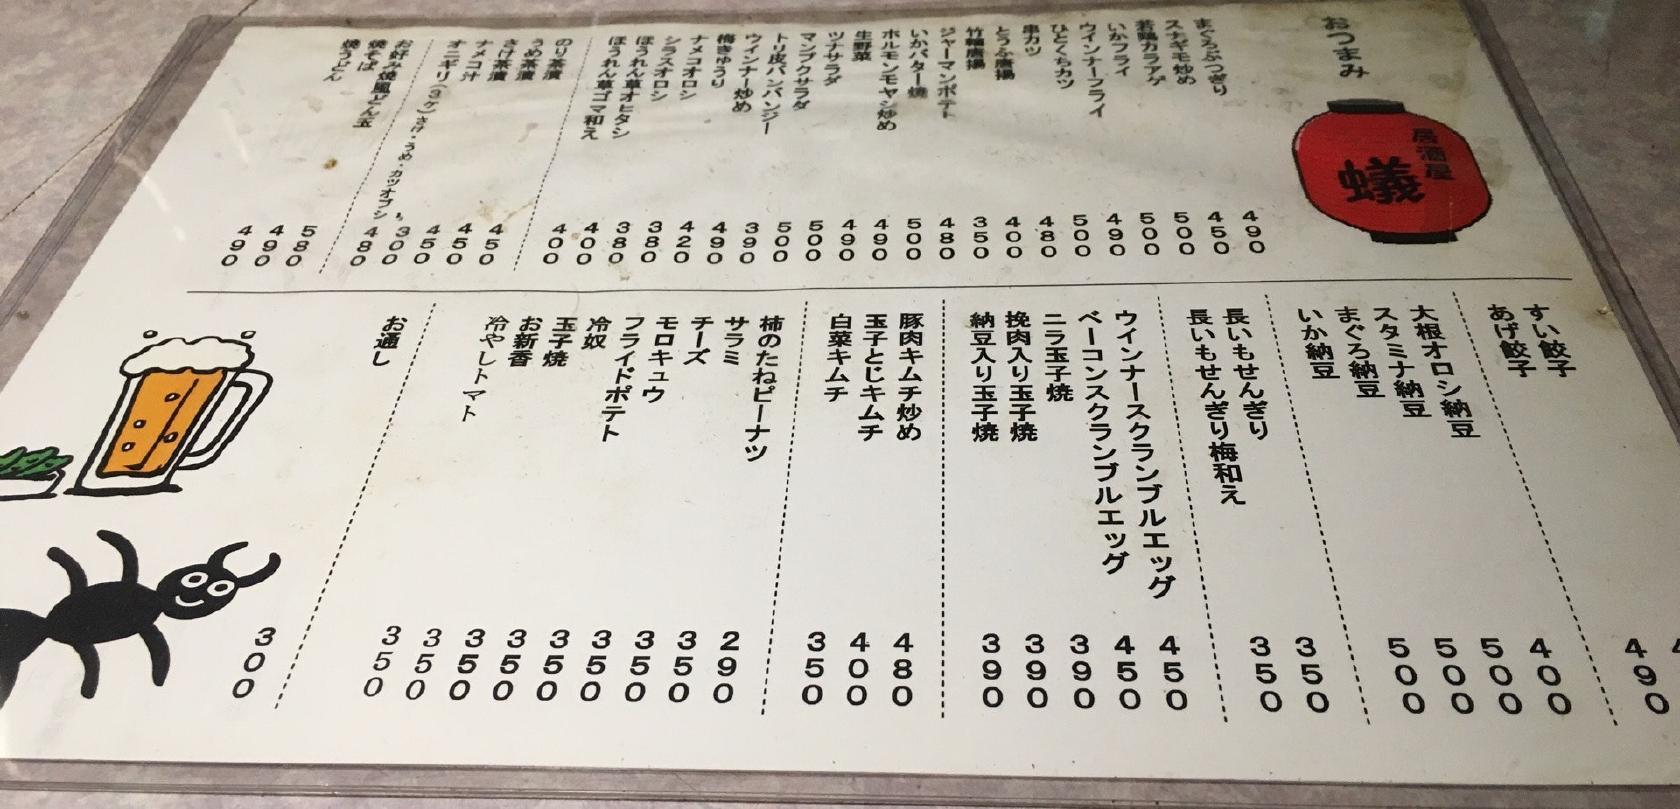 おつまみ
居酒屋
蟻
まぐろぶつぎり 490
スナギモ炒め 450
若鶏カラアゲ 500
いかフライ 500
ウインナーフライ 490
ひとくちカツ 500
串カツ 480
とうふ唐揚 400
竹輪唐揚 350
ジャーマンポテト 480
いかバター焼 500
ホルモンモヤシ炒め 490
生野菜 490
ツナサラダ 500
マンプクサラダ 500
トリ皮バンバンジー 390
ウインナー炒め 490
梅きゅうり 420
ナメコオロシ 380
シラスオロシ 380
ほうれん草オヒタシ 400
ほうれん草ゴマ和え 400
のり茶漬 450
うめ茶漬 450
さけ茶漬 450
ナメコ汁 300
オニギリ(3ケ)さけ・うめ・カツオブシ 480
お好み焼風どん玉 580
焼そば 490
焼うどん 490
すい餃子
あげ餃子 490
大根オロシ納豆 400
スタミナ納豆 500
まぐろ納豆 500
いか納豆 500
長いもせんぎり 350
長いもせんぎり梅和え 350
ウインナースクランブルエッグ 450
ベーコンスクランブルエッグ 450
ニラ玉子焼 390
挽肉入り玉子焼 390
納豆入り玉子焼 390
豚肉キムチ炒め 480
玉子とじキムチ 400
白菜キムチ 350
柿のたねピーナツ 290
サラミ 350
チーズ 350
モロキュウ 350
フライドポテト 350
冷奴 350
玉子焼 350
お新香 350
冷やしトマト 350
お通し 300